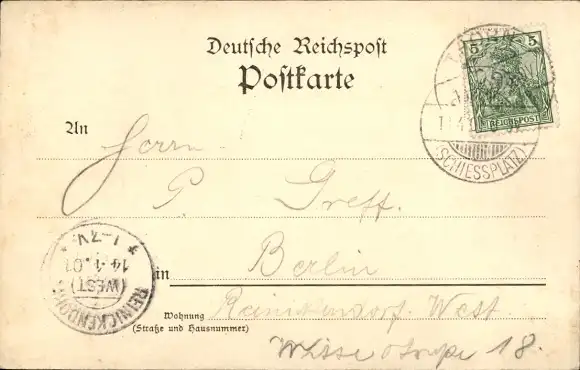 Deutsche Reichspost
Postkarte
5 5
REICHSPOST
(SCHIESSPLATZ)
An Herrn
P Greff.
in Berlin
Wohnung Reinickendorf. West
(Straße und Hausnummer)
18.
REINICKENDORF
(WEST)
14.1.01
* 1-2V. *